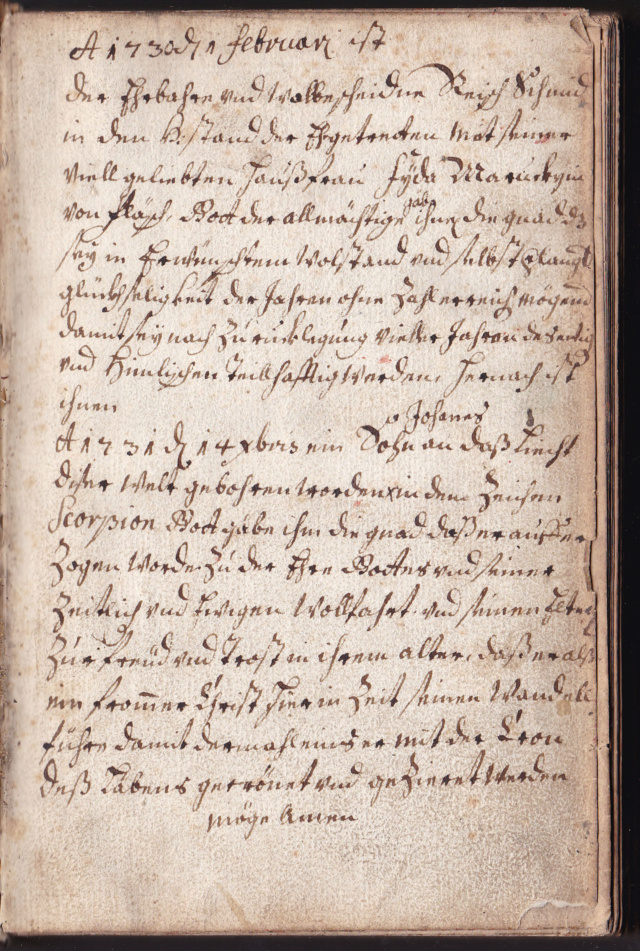 A 1730 d 1 februari ist
der Ehrbahre und Wolbescheidne Reisch Schmid
in den Ehstand der Ehgetretten mit seiner
viell geliebten Haußfrau Fyda Maruckgin
von fläsch, Gott der allmächtige gab ihnen die gnad dz
sey in Erwünschtem Wolstand und selbst
glückseligkeit der Jahren ohne Zahl erreich mögend
damit sey nach Zu rucklegung viller Jahren deß ewig
und Himlischen teillhafftig werden, Hernach ist
ihnen
o Johanes
A 1731 d 14 xbris ein Sohn an daß Liecht
diser Welt gebohren worden in dem Zeichen
Scorpion Gott gäbe ihm die gnad daß er auff er
Zogen werde Zu der Ehre Gottes und seiner
Zeitlich und Ewigen Wollfahrt und seinen Elter
Zur freüd und trost in ihrem alter, daß er alß
ein fromer Christ hier in Zeit seinen Wandell
führe damit dermahleins er mit der Cron
deß Läbens gecrönet und geZieret werden
möge Amen